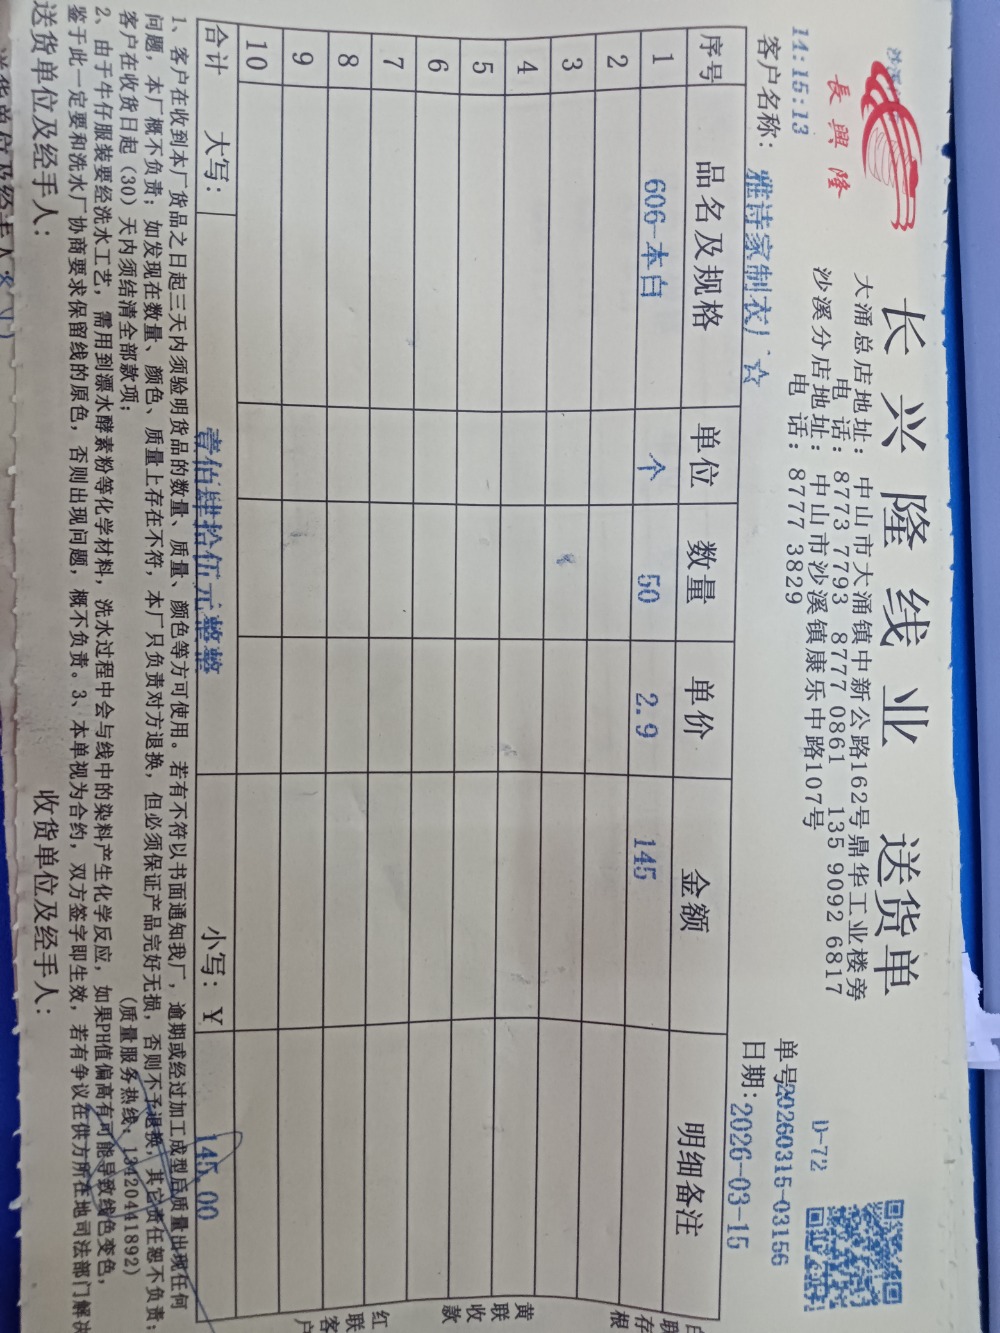 长兴隆线业 送货单
長興隆
大涌总店地址：中山市大涌镇中新公路162号鼎华工业楼旁
电 话：8773 7793 8777 0861 135 9092 6817
沙溪分店地址：中山市沙溪镇康乐中路107号
电 话：8777 3829
D-72
14:15:13
单号20260315-03156
客户名称：雅诗家制衣厂☆
日期：2026-03-15
序号 品名及规格 单位 数量 单价 金额 明细备注
1 606-本白 个 50 2.9 145
2
3
4
5
6
7
8
9
10
合计 大写： 壹佰肆拾伍元整整 小写：¥ 145.00
1、客户在收到本厂货品之日起三天内须验明货品的数量、质量、颜色等方可使用。若有不符以书面通知我厂，逾期或经过加工成型后质量出现任何
问题，本厂概不负责；如发现在数量、颜色、质量上存在不符，本厂只负责对方退换，但必须保证产品完好无损，否则不予退换，其它责任恕不负责；
客户在收货日起（30）天内须结清全部款项； （质量服务热线、13420441892）
2、由于牛仔服装要经洗水工艺，需用到漂水酵素粉等化学材料，洗水过程中会与线中的染料产生化学反应，如果PH值偏高有可能导致线色变色，
鉴于此一定要和洗水厂协商要求保留线的原色，否则出现问题，概不负责。3、本单视为合约，双方签字即生效，若有争议在供方所在地司法部门解决
送货单位及经手人： 收货单位及经手人：
联存根
黄联收款
红联客户